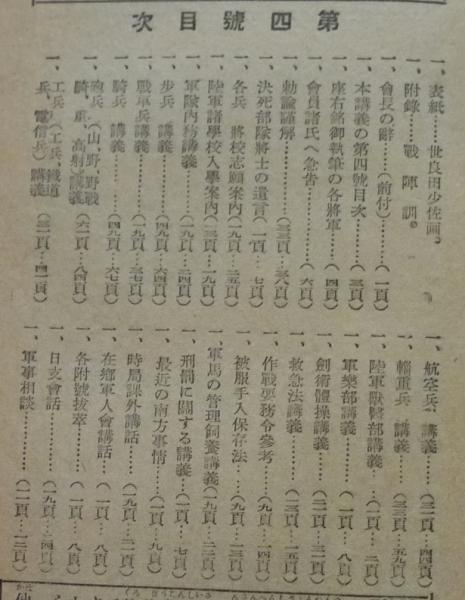 第四號目次
一、表紙……世良田少佐画。
一、附錄……戰陣訓。
一、會長の辭……(前付)……(一頁)
一、本講義の第四號目次……(三頁)
一、座右銘御執筆の各將軍……(四頁)
一、會員諸氏へ急告……(六頁)
一、勅諭謹解……(三三頁—三八頁)
一、決死部隊將士の遺言(一頁—七頁)
一、各兵 將校志願案内(一九頁—二五頁)
一、陸軍諸學校入學案内(一三頁—一九頁)
一、軍隊内務講義……(一九頁—二四頁)
一、步兵 講義……(四九頁—六四頁)
一、戰車兵講義……(一九頁—三七頁)
一、騎兵 講義……(四九頁—六七頁)
一、砲兵(山、野、野戰
騎、重、高射)講義(六一頁—八四頁)
一、工兵(工兵、鐵道
兵、電信兵)講義(三一頁—四一頁)
一、航空兵 講義……(三一頁—四四頁)
一、輜重兵 講義……(三三頁—五九頁)
一、陸軍獸醫部講義……(一頁—二頁)
一、軍樂部講義……(一頁—八頁)
一、劍術體操講義……(二一頁—三二頁)
一、救急法講義……(一三頁—一五頁)
一、作戰要務令參考……(九頁—一四頁)
一、被服手入保存法……(九頁—一三頁)
一、軍馬の管理飼養講義(一九頁—二二頁)
一、刑罰に關する講義……(一頁—七頁)
一、最近の南方事情……(一頁—九頁)
一、時局課外講話……(一九頁—二一頁)
一、在鄕軍人會講話……(一頁—八頁)
一、各附號拔萃……(一頁—八頁)
一、日支會話……(一九頁—二四頁)
一、軍事相談……(一一頁—一三頁)